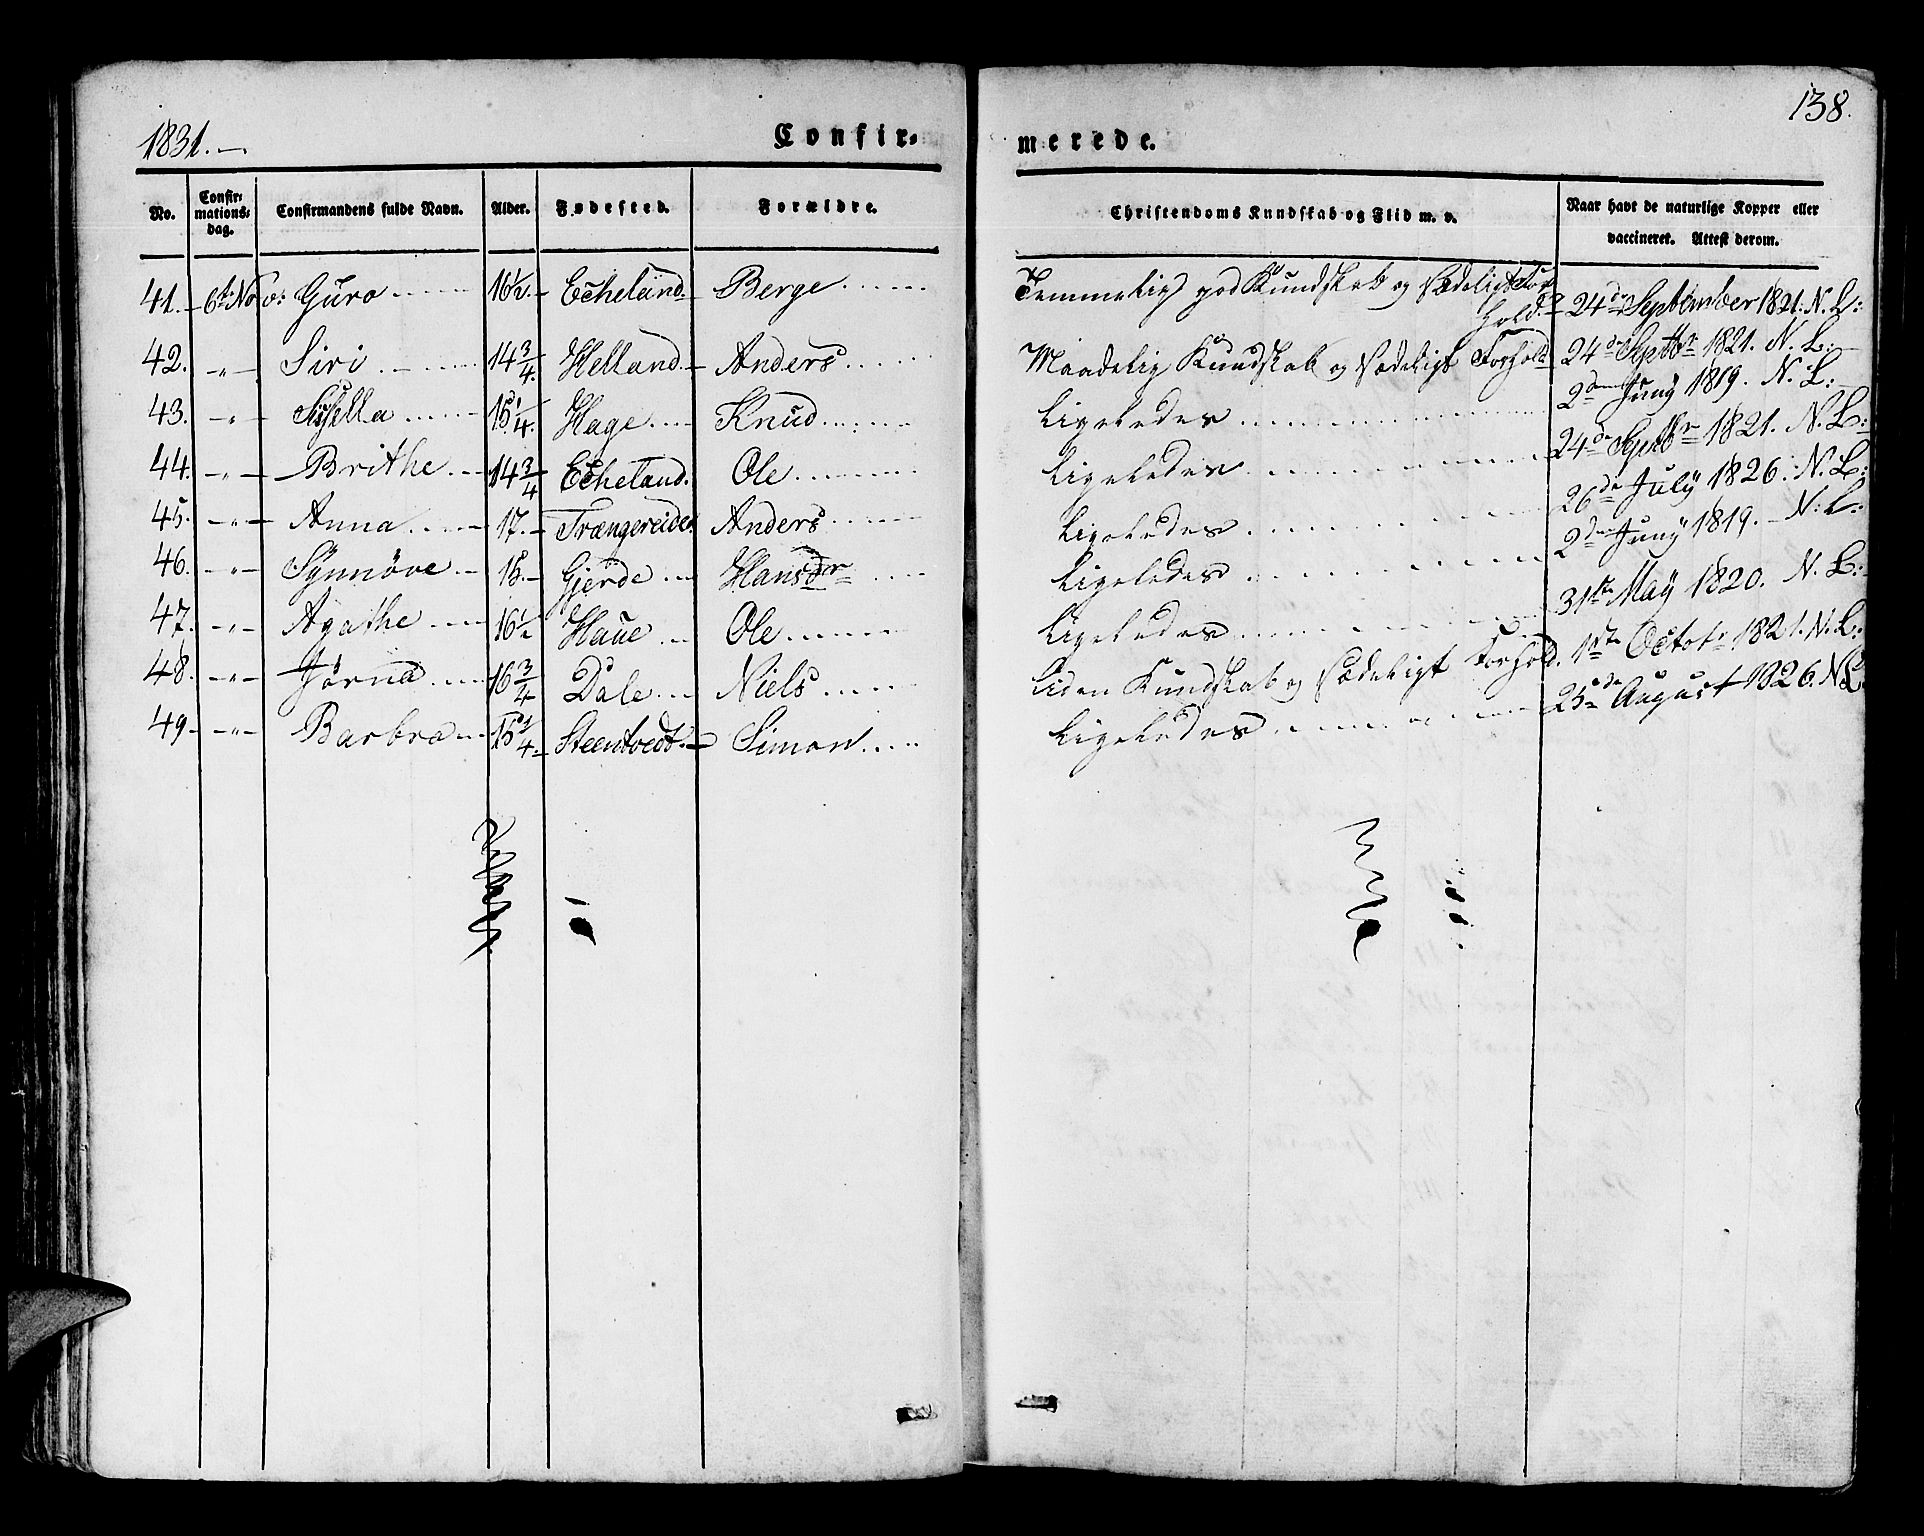 138.
1831.
Confir-
merede.
No. Confir-mations-dag. Confirmandens fulde Navn. Alder. Fødested. Forældre. Christendoms Kundskab og Flid m. v. Naar havt de naturlige Kopper eller vaccineret. Attest derom.
41. 6te Nov: Guro 16 1/2. Echeland. Berge Temmelig god Kundskab og sædeligt For-hold. 24de September 1821. N. L:
42. " Siri 14 3/4. Helland. Anders Maadelig Kundskab og sædeligt Forhold 24de Septbr 1821. N. L:
43. " 15 1/4. Hage Knud Ligeledes 2den Juny 1819. N. L:
44. " Brithe 14 3/4 Echeland. Ole Ligeledes 24de Septbr 1821. N. L:
45. " Anna 17. Trængereide. Anders Ligeledes 26de July 1826. N. L:
46. " Synnöve 15. Gjerde Hans Ligeledes 2den Juny 1819. N. L:
47. " Agathe 16 1/2 Haue Ole Ligeledes 31te May 1820. N. L:
48. " Jörna 16 3/4 Dale Niels Liden Kundskab og sædeligt Forhold. 1ste Octobr 1821. N. L:
49 " Barbra 15 1/4. Steentvedt. Simon Ligeledes 25de August 1826. N L